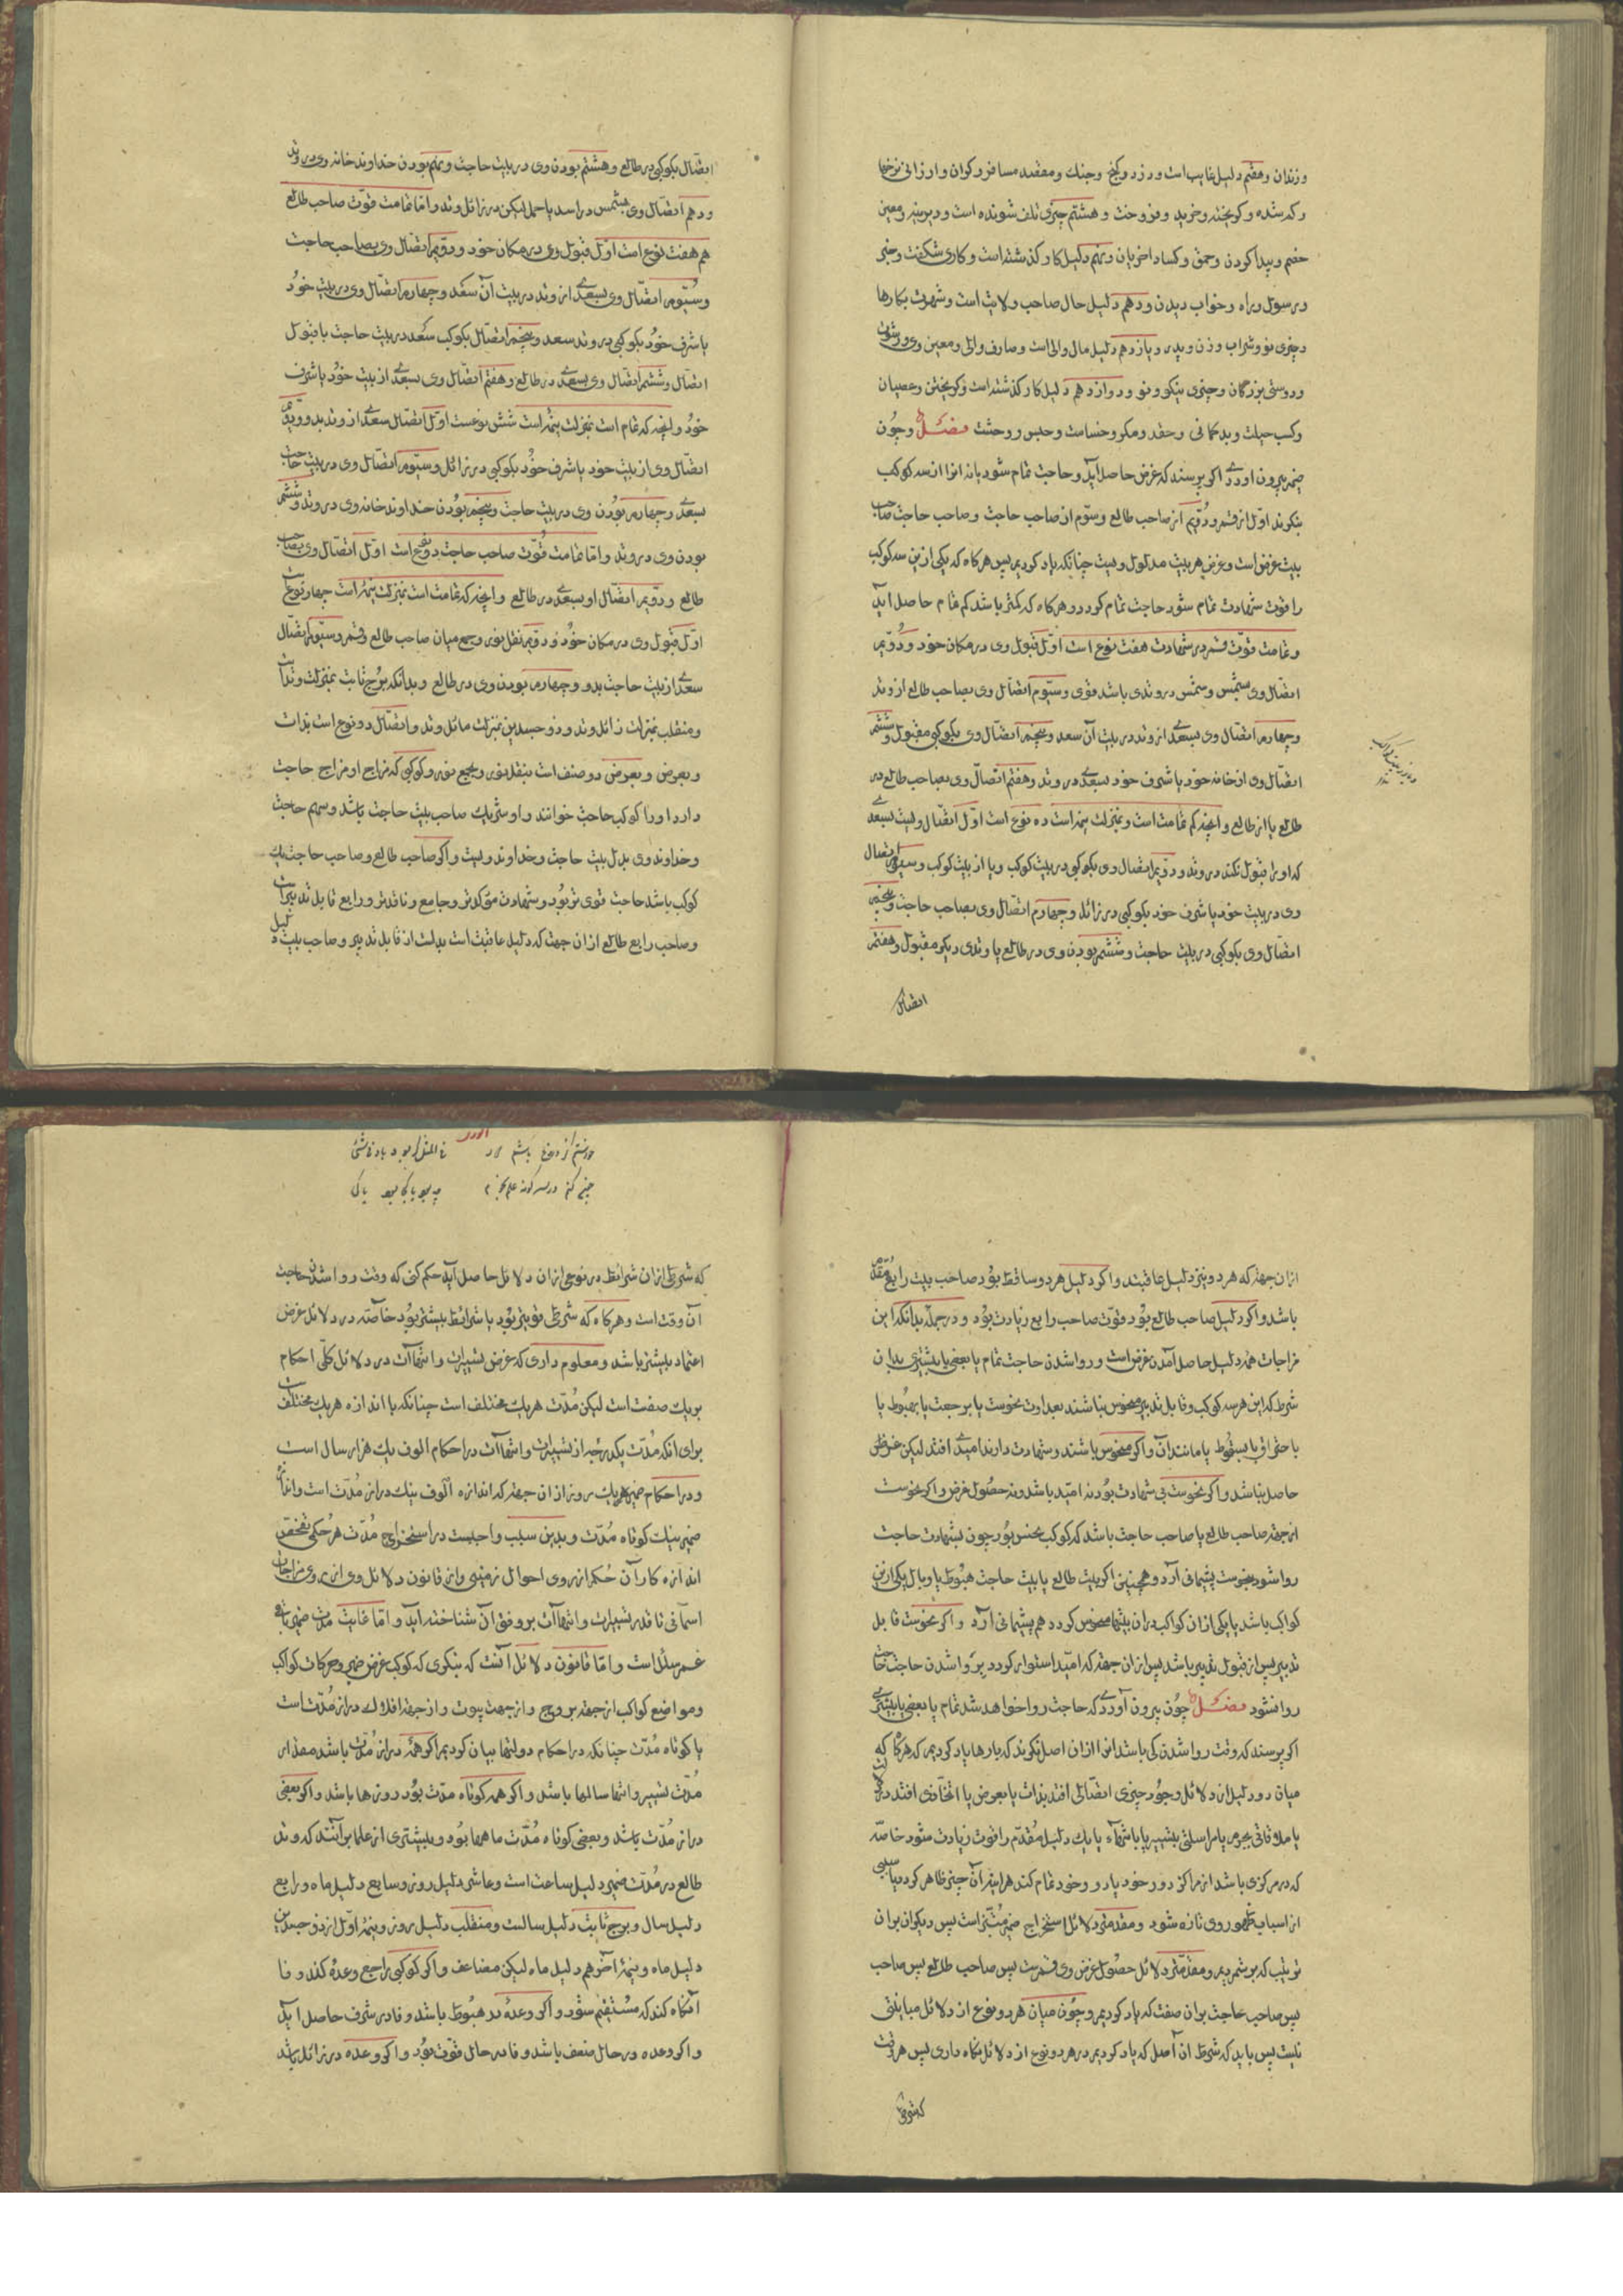 و زندان و هفتم دلیل غایب است و دزد و گنج و جنك و مفقد مسافر دکوان و ارزانی نرخها
و کم شده و کریخته و خرید و فروخت و هشتم چیزی تلف شونده است و دیرینه و معین
خصم و پیدا کردن و حمق و کساد اخریان و نهم دلیل کار کذشته است و کاری شکفت و خبر
و رسول و راه و خواب دیدن و دهم دلیل حال صاحب ولایت است و شهرت بکارها
و چیزی نو و شراب و زن و پدر و یازدهم دلیل مال والی است و صارف والی و معین وی و رشوت
و دوستی بزرگان و چیزی نیکو و نو و دوازدهم دلیل کار کذشته است و کریختن و عصیان
و کسب حیلت و بد کمانی و حقد و مکر و خسامت و حبس و وحشت فصل و چون
ضمیر بیرون اوردی اکر پرسند که غرض حاصل آید و حاجت تمام شود یا نه انرا از سه کوکب
بنکرند اول از قمر و دویم از صاحب طالع و سوم از صاحب حاجت و صاحب حاجت صاحب
بیت غرض است و غرض هر بیت مدلول ویست چنانکه یاد کردیم پس هرکاه که یکی ازین سه کوکب
را قوت شهادت تمام شود حاجت تمام کردد و هرکاه که کمتر باشد کم تمام حاصل آید
و تمامت قوت قمر در شهادت هفت نوع است اول قبول وی در مکان خود و دویم
اتصال وی بشمس و شمس در وتدی باشد قوی و سیوم اتصال وی بصاحب طالع از وتد
و چهارم اتصال وی بسعدی از وتد در بیت آن سعد و پنجم اتصال وی بکوکبی مقبول و ششم
اتصال وی از خانه خود یا شرف خود بسعدی در وتد و هفتم اتصال وی بصاحب طالع در
طالع یا از طالع و آنچه کم تمامت است و بمنزلت نیمه است ده نوع است اول اتصال ویست بسعدی
که او را قبول نکند در وتد و دویم اتصال وی بکوکبی در بیت کوکب و یا از بیت کوکب و سیوم اتصال
وی در بیت خود یا شرف خود بکوکبی در زائل و چهارم اتصال وی بصاحب حاجت و پنجم
اتصال وی بکوکبی در بیت حاجت و ششم بودن وی در طالع یا وتدی دیکر مقبول و هفتم
اتصال
اتصال بکوکبی در طالع و هشتم بودن وی در بیت حاجت و نهم بودن خداوند خانه وی در وتد
و دهم اتصال وی بشمس در اسد یا حمل لیکن در زائل وتد و اما تمامت قوت صاحب طالع
هم هفت نوع است اول قبول وی در مکان خود و دویم اتصال وی بصاحب حاجت
و سیوم اتصال وی بسعدی از وتد در بیت آن سعد و چهارم اتصال وی در بیت خود
یا شرف خود بکوکبی در وتد سعد و پنجم اتصال بکوکب سعد در بیت حاجت با قبول
اتصال و ششم اتصال وی بسعدی در طالع و هفتم اتصال وی بسعدی از بیت خود یا شرف
خود و آنچه کم تمام است بمنزلت نیمه است شش نوعست اول اتصال سعدی از وتد بدو و دویم
اتصال وی از بیت خود یا شرف خود بکوکبی در زائل و سیوم اتصال وی در بیت حاجت
بسعدی و چهارم بودن وی در بیت حاجت و پنجم بودن خداوند خانه وی در وتد و ششم
بودن وی در وتد و اما تمامت قوت صاحب حاجت دو نوع است اول اتصال وی بصاحب
طالع و دویم اتصال او بسعدی در طالع و آنچه کم تمامت است بمنزلت نیمه است چهار نوع است
اول قبول وی در مکان خود و دویم نقل نور و جمع میان صاحب طالع و قمر و سیوم اتصال
سعدی از بیت حاجت بدو و چهارم بودن وی در طالع و بدانکه برج ثابت بمنزلت وتد است
و منقلب بمنزلت زائل وتد و ذو جسدین بمنزلت مائل وتد و اتصال دو نوع است بذات
و بعوض و بعوض دو صنف است بنقل نور و بجمع نور و کوکبی که مزاج او مزاج حاجت
دارد او را کوکب حاجت خوانند و او شریك صاحب بیت حاجت باشد و سهم حاجت
و خداوند وی بدل بیت حاجت و خداوند ویست و اکر صاحب طالع و صاحب حاجت یك
کوکب باشد حاجت قوی تر بود و شهادت مؤکدتر و جامع و ناقدتر و رابع قابل تدبیر است
و صاحب رابع طالع از ان جهت که دلیل عاقبت است بدلست از قابل تدبیر و صاحب بیت دلیل
از ان جهة که هر دو نیز دلیل عاقبتند و اکر دلیل هر دو ساقط بود صاحب بیت رابع مقدم
باشد و اکر دلیل صاحب طالع بود قوت صاحب رابع زیادت بود و در جمله بدانکه این
مزاجات همه دلیل حاصل آمدن غرض است و روا شدن حاجت تمام یا بعضی یا بیشتری بدان
شرط که این هر سه کوکب و قابل تدبیر منحوس نباشند بعداوت نحوست یا برجعت یا بهبوط یا
باحتراق یا بسقوط یا مانند آن و اکر منحوس باشند و شهادت دارند امیدی افتد لیکن غرض
حاصل نباشد و اکر نحوست بی شهادت بود نه امید باشد و نه حصول غرض و اکر نحوست
از جهة صاحب طالع یا صاحب حاجت باشد که کوکب نحس بود چون بشهادت حاجت
روا شود بنحوست پشیمانی آرد و همچنین اکر بیت طالع یا بیت حاجت هبوط یا وبال یکی ازین
کواکب باشد یا یکی از ان کواکب در ان بیتها منحوس کردد هم پشیمانی آرد و اکر نحوست قابل
تدبیر پس از قبول تدبیر باشد پس از ان جهة که امید استوار کردد بر روا شدن حاجت حاجت
روا نشود فصل چون بیرون آوردی که حاجت روا خواهد شد تمام یا بعضی یا بیشتری
اکر پرسند که وقت روا شدن کی باشد انرا از ان اصل نکرند که بارها یاد کردیم که هرکاه که
میان دو دلیل از دلائل وجود چیزی اتصالی افتد بذات یا بعوض یا اتحادی افتد
یا ملاقاتی بجرم یا مراسلتی بتسییر یا بانتهاء یا یك دلیل مقدم را قوت زیادت شود خاصه
که در مرکزی باشد از مراکز دور خود یا دور خود تمام کند هر اینه آن چیز ظاهر کردد یا سببی
از اسباب ظهور وی تازه شود و مقدمتر دلائل استخراج ضمیر مبتز است پس دیکران بران
ترتیب که برشمردیم و مقدمتر دلائل حصول غرض وی قمرست پس صاحب طالع پس صاحب
پس صاحب حاجت بران صفت که یاد کردیم و چون میان هر دو نوع از دلائل مباینتی
نیست پس باید که شرط ان اصل که یاد کردیم در هر دو نوع از دلائل نکاه داری پس هر وقت
که شرطی
که شرطی از ان شرائط در نوعی از ان دلائل حاصل آید حکم کنی که وقت روا شدن حاجت
آن وقت است و هرکاه که شرطی قویتر بود یا شرائط بیشتر بود خاصه در دلائل غرض
اعتماد بیشتر باشد و معلوم داری که غرض تسییرات و انتهاآت در دلائل کلی احکام
بر یك صفت است لیکن مدت هریك مختلف است چنانکه با اندازه هریك مختلف است
برای انکه مدت یکدرجه از تسییرات و انتهاآت در احکام الوف یك هزار سال است
و در احکام ضمیر هریك روز از ان جهة که اندازه الوف نیك دراز مدت است و اندازه
ضمیر نیك کوتاه مدت و بدین سبب واجبست در استخراج مدت هر حکمی تحقیق
اندازه کار آن حکم از روی احوال زمینی و از قانون دلائل وی از روی مزاجات
اسمانی تا قدر تسییرات و انتهاآت بر وفق آن شناخته آید و اما غایت مدت ضمیر تمامی
عمر سائل است و اما قانون دلائل آنست که بنکری که کوکب غرض ضمیر و حرکات کواکب
و مواضع کواکب از جهة بروج و از جهت بیوت و از جهة افلاك دراز مدت است
یا کوتاه مدت چنانکه در احکام دولتها بیان کردیم اکر همه دراز مدت باشد مقدار
مدت تسییر و انتها سالها باشد و اکر همه کوتاه مدت بود روزها باشد و اکر بعضی
دراز مدت باشد و بعضی کوتاه مدت ماهها بود و بیشتری از علما برآنند که وتد
طالع در مدت ضمیر دلیل ساعت است و عاشر دلیل روز و سابع دلیل ماه و رابع
دلیل سال و برج ثابت دلیل سالست و منقلب دلیل روز و نیمه اول از ذو جسدین
دلیل ماه و نیمه آخر هم دلیل ماه لیکن مضاعف و اکر کوکبی راجع وعده کند وفا
آنکاه کند که مستقیم شود و اکر وعده در هبوط باشد وفا در شرف حاصل آید
و اکر وعده در حال ضعف باشد وفا در حال قوت بود و اکر وعده در زائل باشد